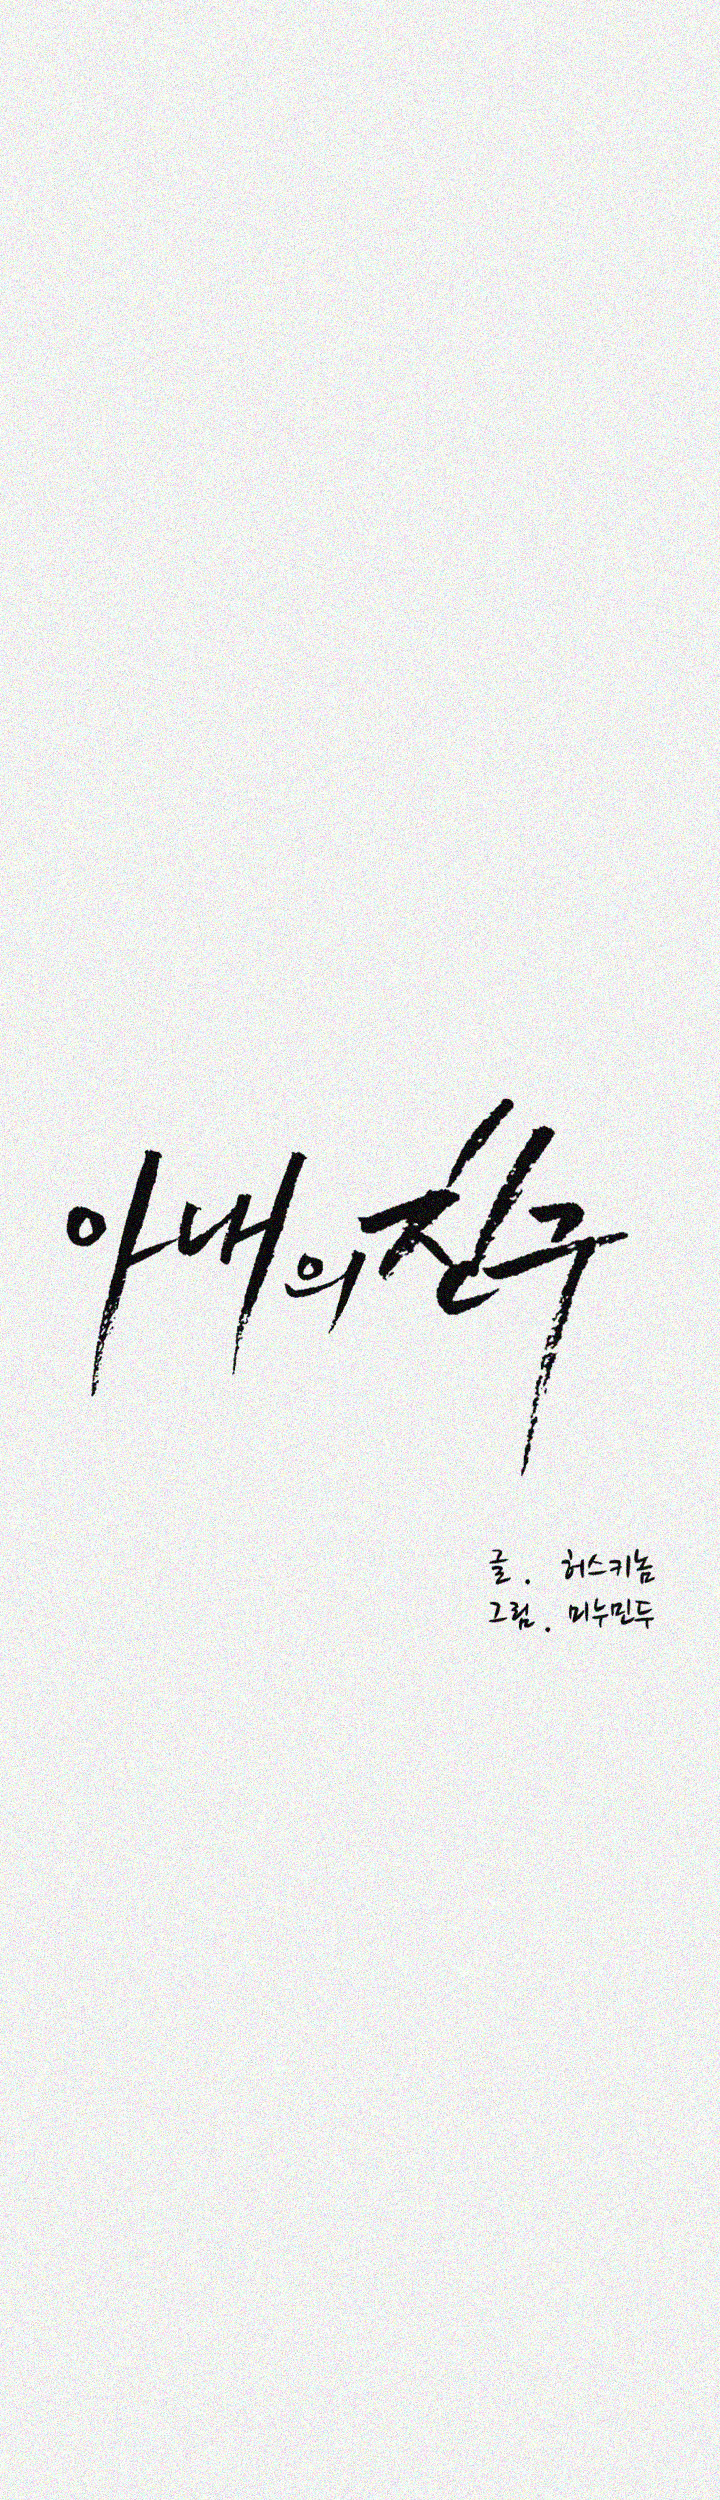 아내의 친구
글. 허스키놈
그림. 미누민두